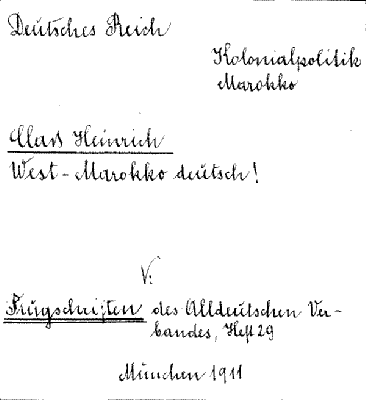 Deutsches Reich
Kolonialpolitik
Marokko
Class Heinrich
West-Marokko deutsch!
V:
Flugschriften des Alldeutschen Ver-
bandes, Heft 29
München 1911